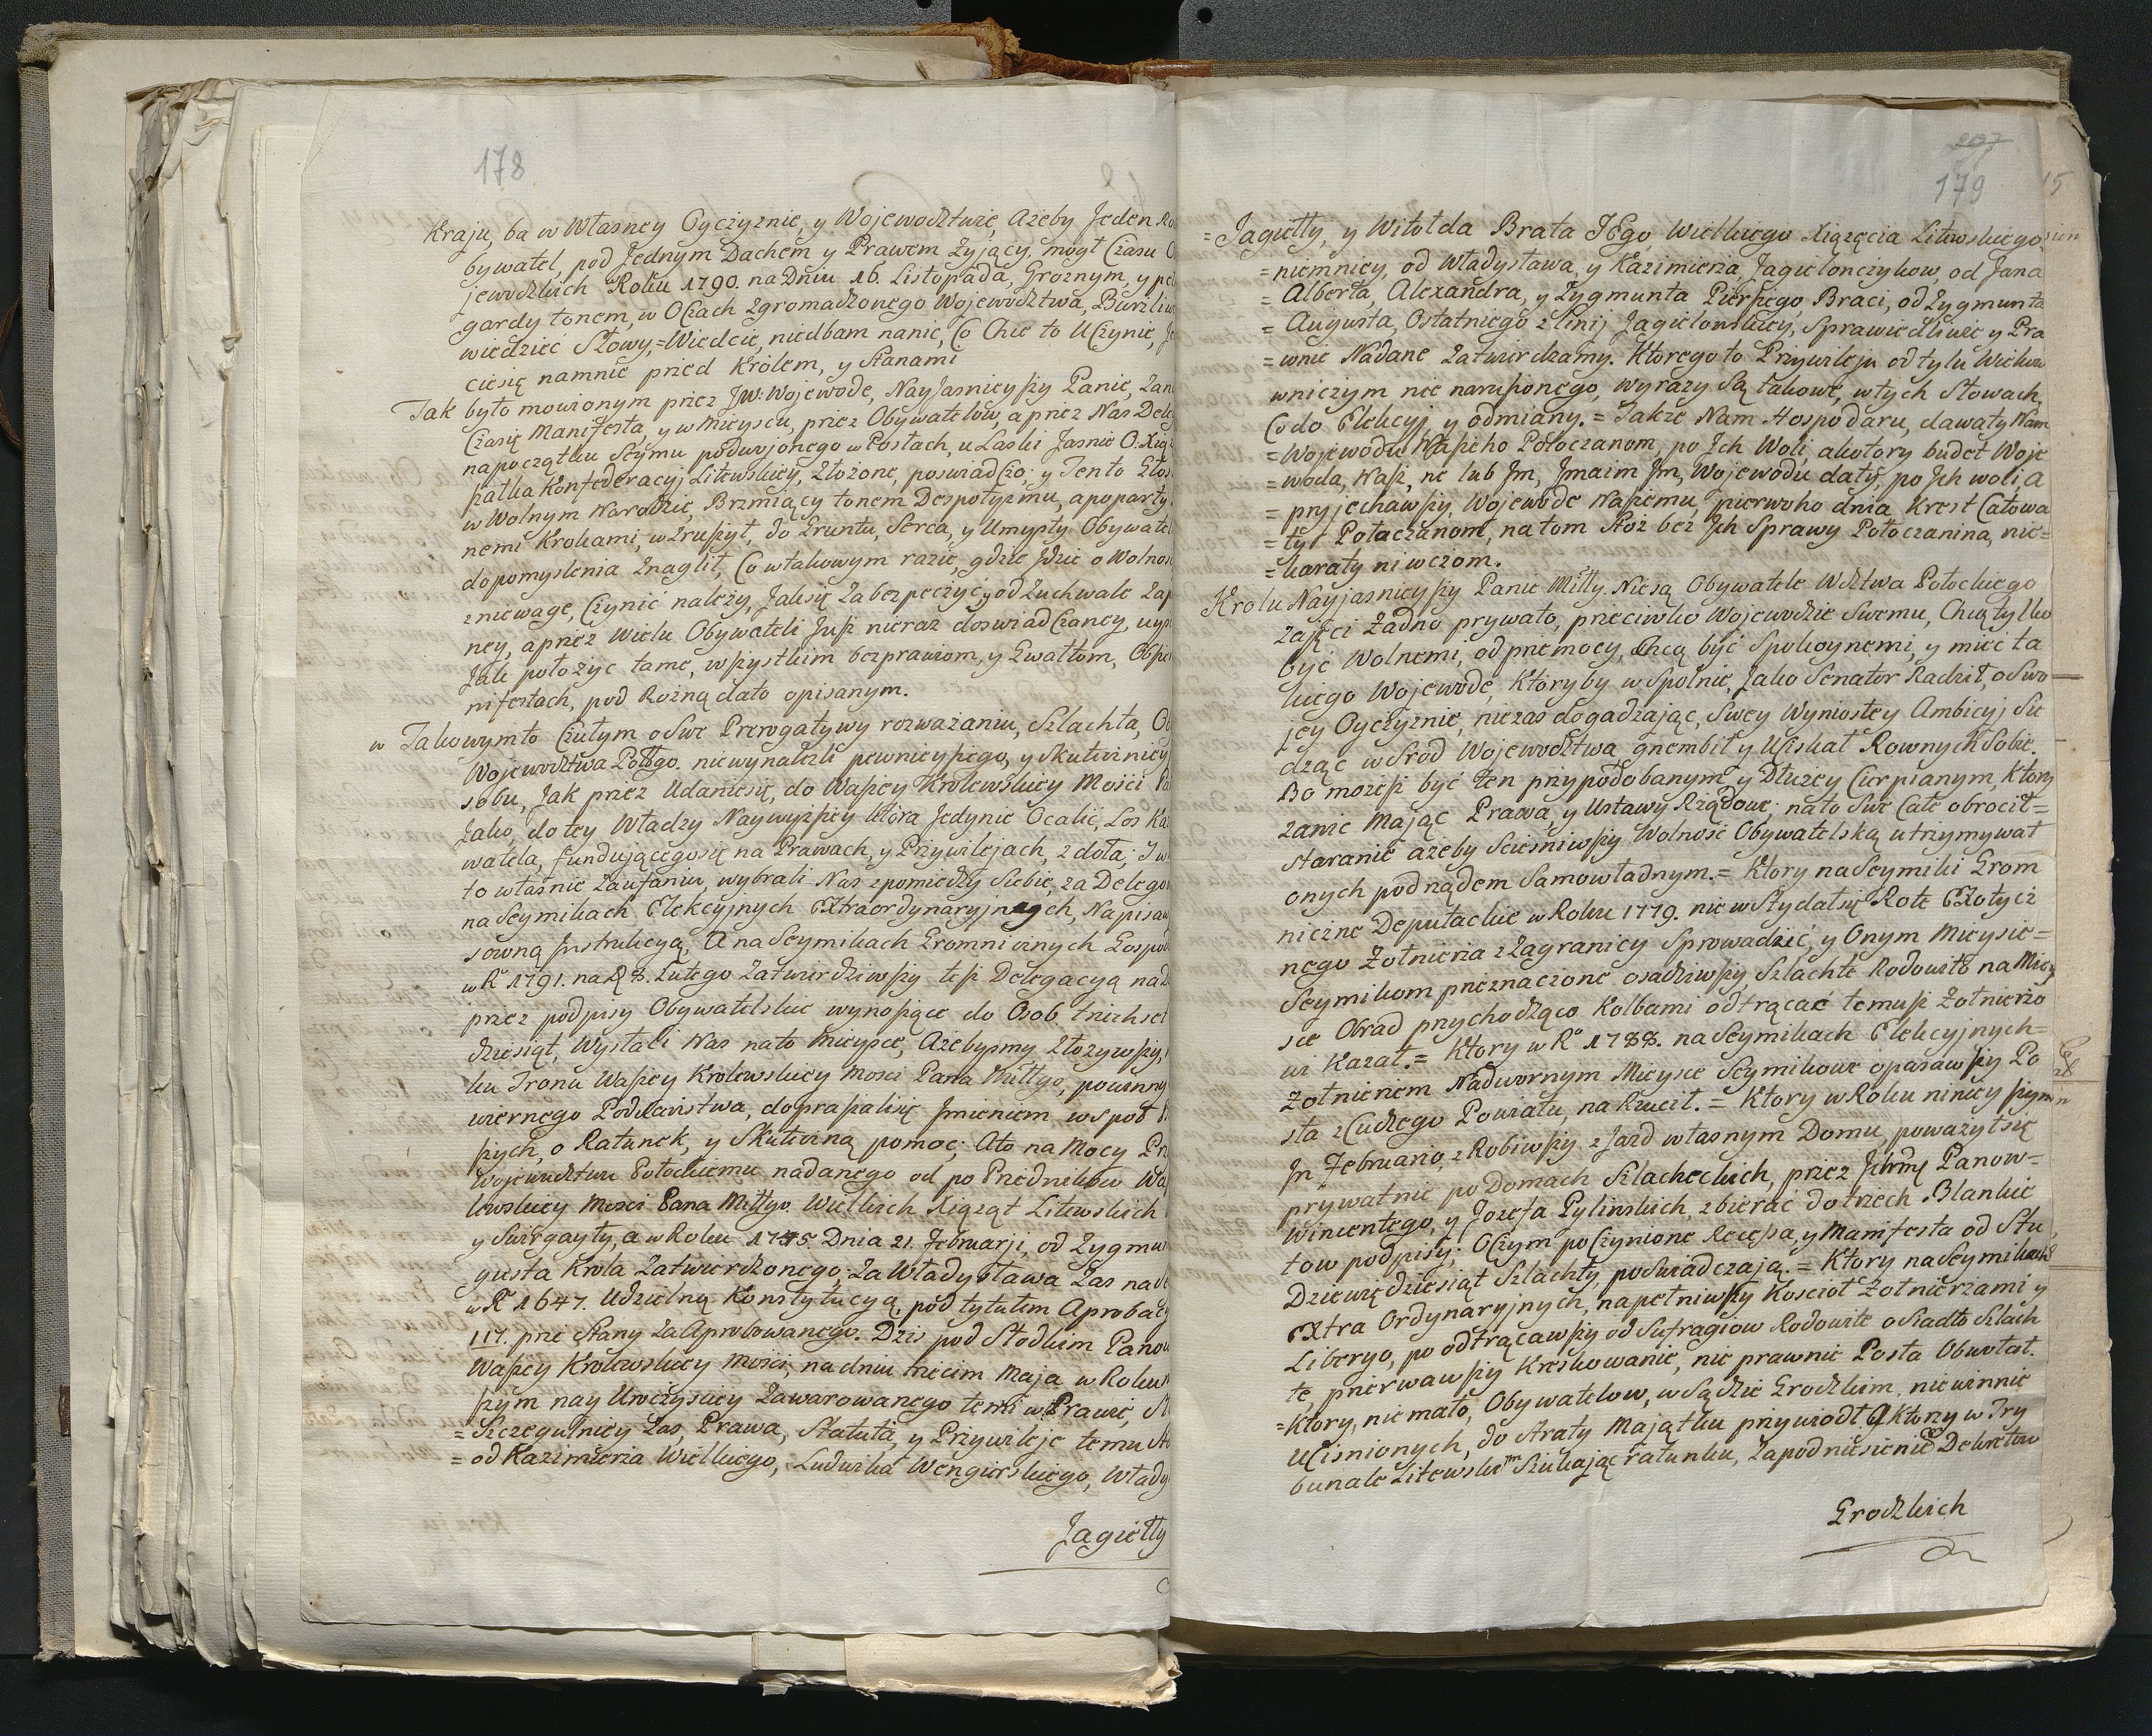 178
Kraju, ba w Własney Oyczyznie, y Wojewodztwie, Ażeby Jeden
bywatel, pod Jednym Dachem y Prawem Zyjący, mogł Czasu
jewodzkich Roku 1790. na Dniu 16. Listopada, Groznym, y
gardy tonem, w Oczach Zgromadzonego Wojewodztwa, Burzliw
wiedzieć Słowy,=Wiedcie, niedbam nanic, Co Chce to UCzynie,
ciesię namnie przed Królem, y Stanami
Jak było mowionym przez Jw: Wojewodę, NayJasnieyszy Panie, Zan
Czasię Manifesta, y w Mieyscu, przez Obywatelow, a przez Nas Dele
napoczątku Seymu podwojonego w Posłach, u Laski Jasnie O: Xią
szałka Konfederacyj Litewskiey, Złożone, poswiadczo; y Tento Głos
w Wolnym Narodzie, Brzmiący tonem Despotyzmu, a poparty
nemi Krokami, wzruszył, do Gruntu, Serca, y Umysły Obywatel
dopomyslenia Znaglił, Co wtakowym razie, gdzie Jdzie o Wolnos
zniewagę, Czynić należy, Jaksię Zabezpeczyć, y od Zuchwale Zap
ney, a przez Wielu Obywateli Jusz nieraz doswiadczaney,
Jak położyc tamę, wszystkim bezprawiom, y Gwałtom, Obsze
nifestach, pod Rożną dato opisanym.
w Takowymto Czułym o Swe Prerogatywy rozważaniu, Szlachta,
Wojewodztwa Połłgo. niewynalezli pewnieyszego, y Skuteczniey
sobu, Jak przez Udaniesię, do Waszey Krolewskiey Mosci
Jako, do tey Władzy Naywyższey która Jedynie Ocalić, Los
watela, fundującegosię na Prawach, y Przywilejach, zdoła; J w
to własnie Zaufaniu, wybrali Nas zpomiedzy Siebie, za Delego
na Seymikach Elekcyjnych Extraordynaryjnych, Napisaw
sowną Jnstrukcyą, A na Seymikach Gromnicznych Gospod
w Rº 1791. na D 8. Lutego Zatwierdziwszy tesz Delegacyą na
przez podpisy Obywatelskie wynoszące do Osob. trzichset
dziesiąt, Wysłali Nas nato Mieysce, Ażebysmy Złozywszy,
ku Tronu Waszey Krolewskiey Mosci Pana Miłłgo, powinny
wiernego Poddaństwa, dopraszalisię Jmieniem wspoł
szych, o Ratunek, y Skuteczną pomoc; Ato na Mocy
Wojewudztwu Połockiemu nadanego od po Przednikow Wa
lewskiey Mosci Pana Miłłgo Wielkich Xiążąt Litewskich
y Swirgayły, a w Roku 1745. Dnia 21. Februarji, od Zygmun
gusta Krola Zatwierdzonego; Za Władysława Zas na
w Rº 1647. Udzielną Konstytucyą, pod tytułem Aprobacy
117. prze Stany ZaAprobowanego. Dzis pod Słodkim Panow
Waszey Krolewskiey Mosci, na dniu trzecim Maja w Roku
szym nay Uroczyscey Zawarowanego temi w Prawie,
=Szczegulniey Zas, Prawa, Statuta, y Przywileje temu
= od Kazimierza Wielkiego, Ludwika Wengierskiego, Włady
Jagiełły
179
15
=Jagiełły, y Witołda Brata JEgo, Wielkiego Xiążęcia Litewskiego,
=niemniey, od Władysława, y Kazimierza, Jagielonczykow, od Jana
= Alberta, Alexandra, y Zygmunta Pierszego, Braci, od Zygmunta
= Augusta, Ostatniego z Linij Jagielowskiey, Sprawiedliwie y Pra
=wnie Nadane Zatwierdzamy. Ktorego to Przywileju od tylu Wiekow
wniczym nie naruszonego, wyrazy Są takowe, wtych Słowach,
Co do Elekcyj, y odmiany.= Takze Nam Hospodaru, dawaty Nam
=Wojewodu Naszeho Połoczanom, po Jch Woli, akotory budet Woje
=woda, Nasz, ne lub Jm, Jmaim Jm, Wojewodu daty, po Jch woli, A
= pryjechawszy, Wojewode Naszemu, pierwoho dnia Krest Całowa
= ty Połaczanom, na tom sztoz bez Jch Sprawy Połoczanina, nie=
=karaty ni w czom.
Krolu Nayjasnieyszy Panie Miłły. Niesą Obywatele Wdztwa Połockiego
zajęci Zadną prywato, przeciwko Wojewodzie Swemu, Chcą tylko
być Wolnemi, od przemocy, Chcą być Spokoynemi, y miec ta
kiego Wojewodę, Ktoryby w Spolnie, Jako Senator Radził, o Swo
jey Oyczyznie, nie zas dogadzając, Swey Wyniosłey Ambicyj Sie
dząc wSrod Wojewodztwa gnembił y Uciskał Rownych Sobie.
Bo możesz być ten przypodobanym, y Dłużey Cierpianym, Ktory
zanic Mając Prawa, y Ustawy Rządowe; nato Swe Całe obrocił=
staranie ażeby Sciesniwszy Wolność Obywatelską utrzymywał
onych pod rządem Samowładnym.= Ktory na Seymiki Grom
niczne Deputackie w Roku 1779. nie wStydałsię Rotę Extycż
nego Żołnierza z Zagranicy Sprowadzić, y Onym Mieysce=
Seymikom przeznaczone osadziwszy, Szlachtę Rodowitą na Miey
sce Obrad przychodząco Kolbami odtrącać temusz Żołnierzo
wi Kazał.= Ktory w Rº 1788. na Seymikach Elekcyjnych=
Zołnierzem Nadwornym Mieysce Seymikowe opasawszy Po
sła z Cudzego Powiatu, na Rzucił.= Ktory w Roku ninieyszym
Jn Februario, z Robiwszy zJazd własnym Domu, poważyłsię
prywatnie po Domach Szlacheckich, przez Jchmę Panow=
Wincentego, y Jozefa Pylinskich, zbierać do trzech Blankie
tow podpisy; OCzym poCzynione Recessa, y Manifesta od Stu
Dziewiędziesiąt Szlachty, poswiadczają.= Ktory na Seymikach
Extra Ordynaryjnych, napełniwszy Kosciol Żołnierzami y
Liberyo, po odtrącawszy od Sufragiow Rodowite osiadło Szlach
te, przerwawszy Kreskowanie, nie prawnie Posła Obwołał.
=Ktory, nie mało, Obywatelow, w Sądzie Grodzkim, niewinnie
Ucisnionych, do straty Majątku przywiodł a ktory w Try
bunale Litewskim Szukając ratunku, Zapodniesienie Dekretow
Grodzkich